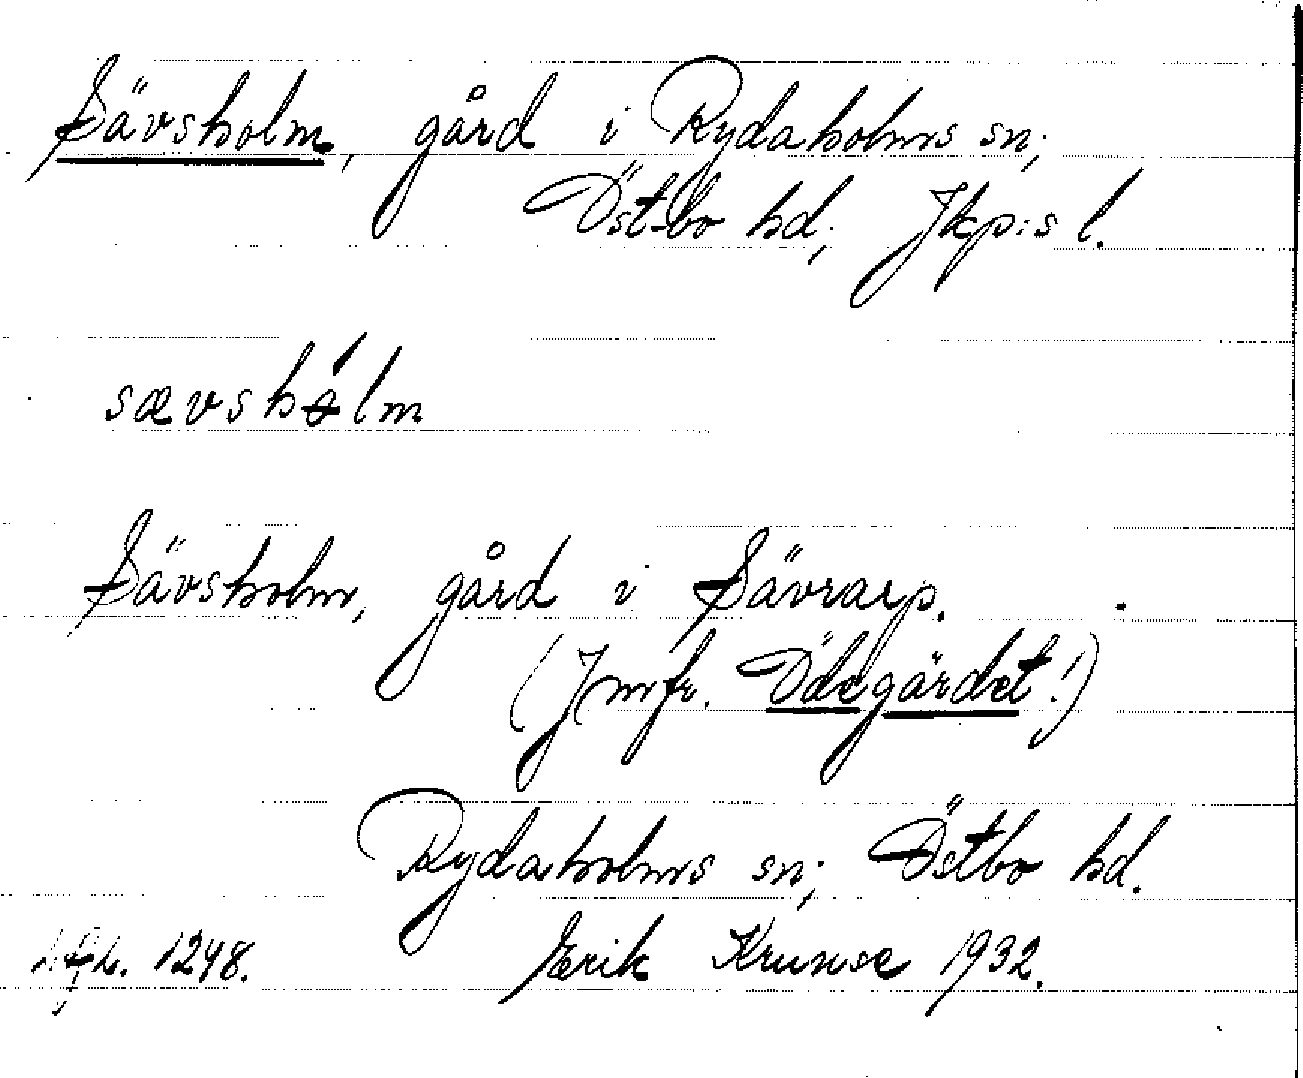 Sävsholm, gård i Rydaholms sn;
Östbo hd; Jkp:s l.
sævshólm
Sävsholm, gård i Sävrarp.
(Jmfr. Ödegärdet!)
Rydaholms sn; Östbo hd.
1248. Erik Krunse 1932.